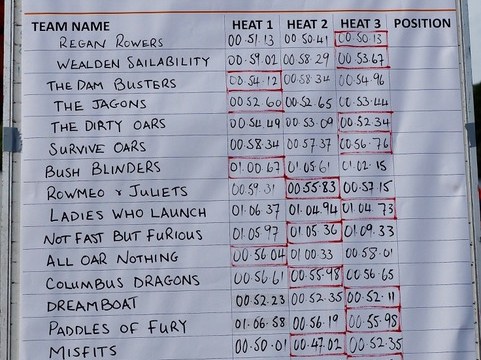 TEAM NAME HEAT 1 HEAT 2 HEAT 3 POSITION
REGAN ROWERS 00 51.13 00 50.41 00 50.13
WEALDEN SAILABILITY 00.59.02 00 58.29 00 53.67
THE DAM BUSTERS 00 54.12 00 58.34 00 54.96
THE JAGONS 00 52 60 00 52 65 00 53.44
THE DIRTY OARS 00 54.49 00 53.09 00 52.34
SURVIVE OARS 00 58.34 00 57.37 00 56.76
BUSH BLINDERS 01.00.67 01 05 61 01 02.15
ROWMEO & JULIETS 00 59.31 00 55.83 00 57.15
LADIES WHO LAUNCH 01.06 37 01 04.94 01 04 73
NOT FAST BUT FURIOUS 01 05 97 01 05 36 01 09.33
ALL OAR NOTHING 00 56 04 01 00.33 00 58.01
COLUMBUS DRAGONS 00 56.61 00 55.98 00 56 65
DREAMBOAT 00 52.23 00 52.35 00 52.11
PADDLES OF FURY 01.06.58 00 56.19 00 55.98
MISFITS 00 50.01 00 47.02 00 52.35